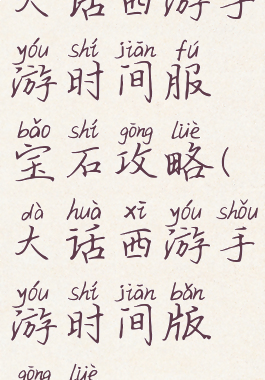 大话西游手
yóu shí jiān fú
游时间服
bǎo shí gōng lüè
宝石攻略(
dà huà xī yóu shǒu
大话西游手
yóu shí jiān bǎn
游时间版
gōng lüè